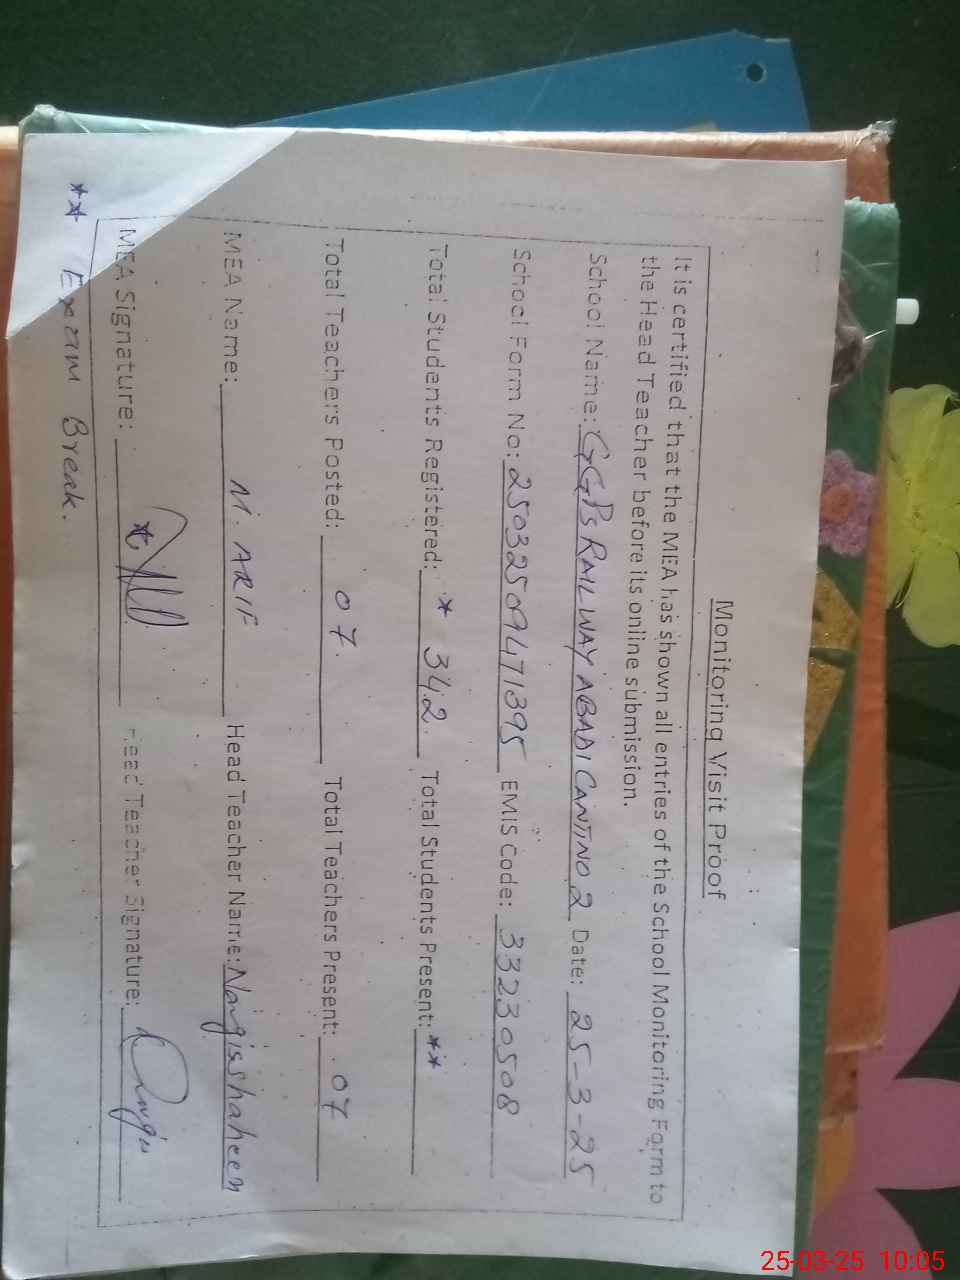 Monitoring Visit Proof
It is certified that the MEA has shown all entries of the School Monitoring Form to
the Head Teacher before its online submission.
School Name: GGPS RAILWAY ABADI CANTT NO 2 Date: 25-3-25
School Form No: 25032509471395 EMIS Code: 33230508
Total Students Registered: * 342. Total Students Present: **
Total Teachers Posted: 07. Total Teachers Present: 07
MEA Name: M. ARIF Head Teacher Name: Nargis shaheen
MEA Signature: Head Teacher Signature:
** Exam Break.
25-03-25 10:05